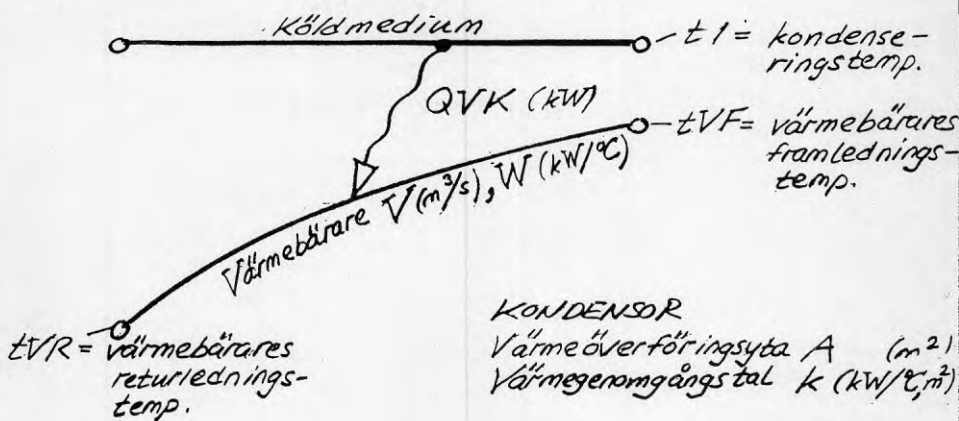 Köldmedium
t1 = kondense-
ringstemp.
QVK (kW)
tVF = värmebärares
framlednings-
temp.
Värmebärare V (m³/s), W (kW/°C)
tVR = värmebärares
returlednings-
temp.
KONDENSOR
Värmeöverföringsyta A (m²)
Värmegenomgångstal k (kW/°C,m²)